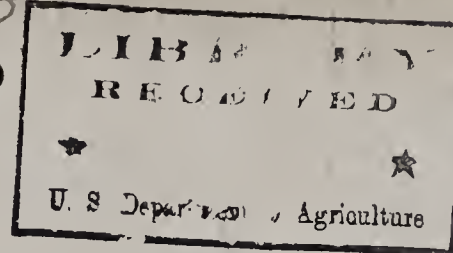 LIBRARY
RECEIVED
U. S Department of Agriculture